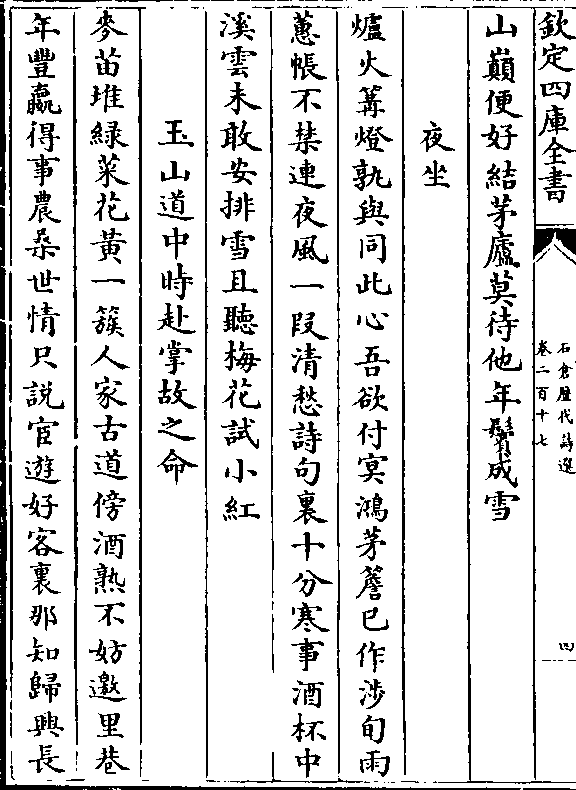 欽定四庫全書
石倉歷代詩選
卷二百十七
四
山巔便好結茅廬莫待他年鬢成雪
夜坐
爐火篝燈孰與同此心吾欲付冥鴻茅簷已作涉旬雨
蕙帳不禁連夜風一段清愁詩句裏十分寒事酒杯中
溪雲未敢安排雪且聽梅花試小紅
玉山道中時赴掌故之命
麥苗堆緑菜花黄一簇人家古道傍酒熟不妨邀里巷
年豐贏得事農桑世情只説宦遊好客裏那知歸興長